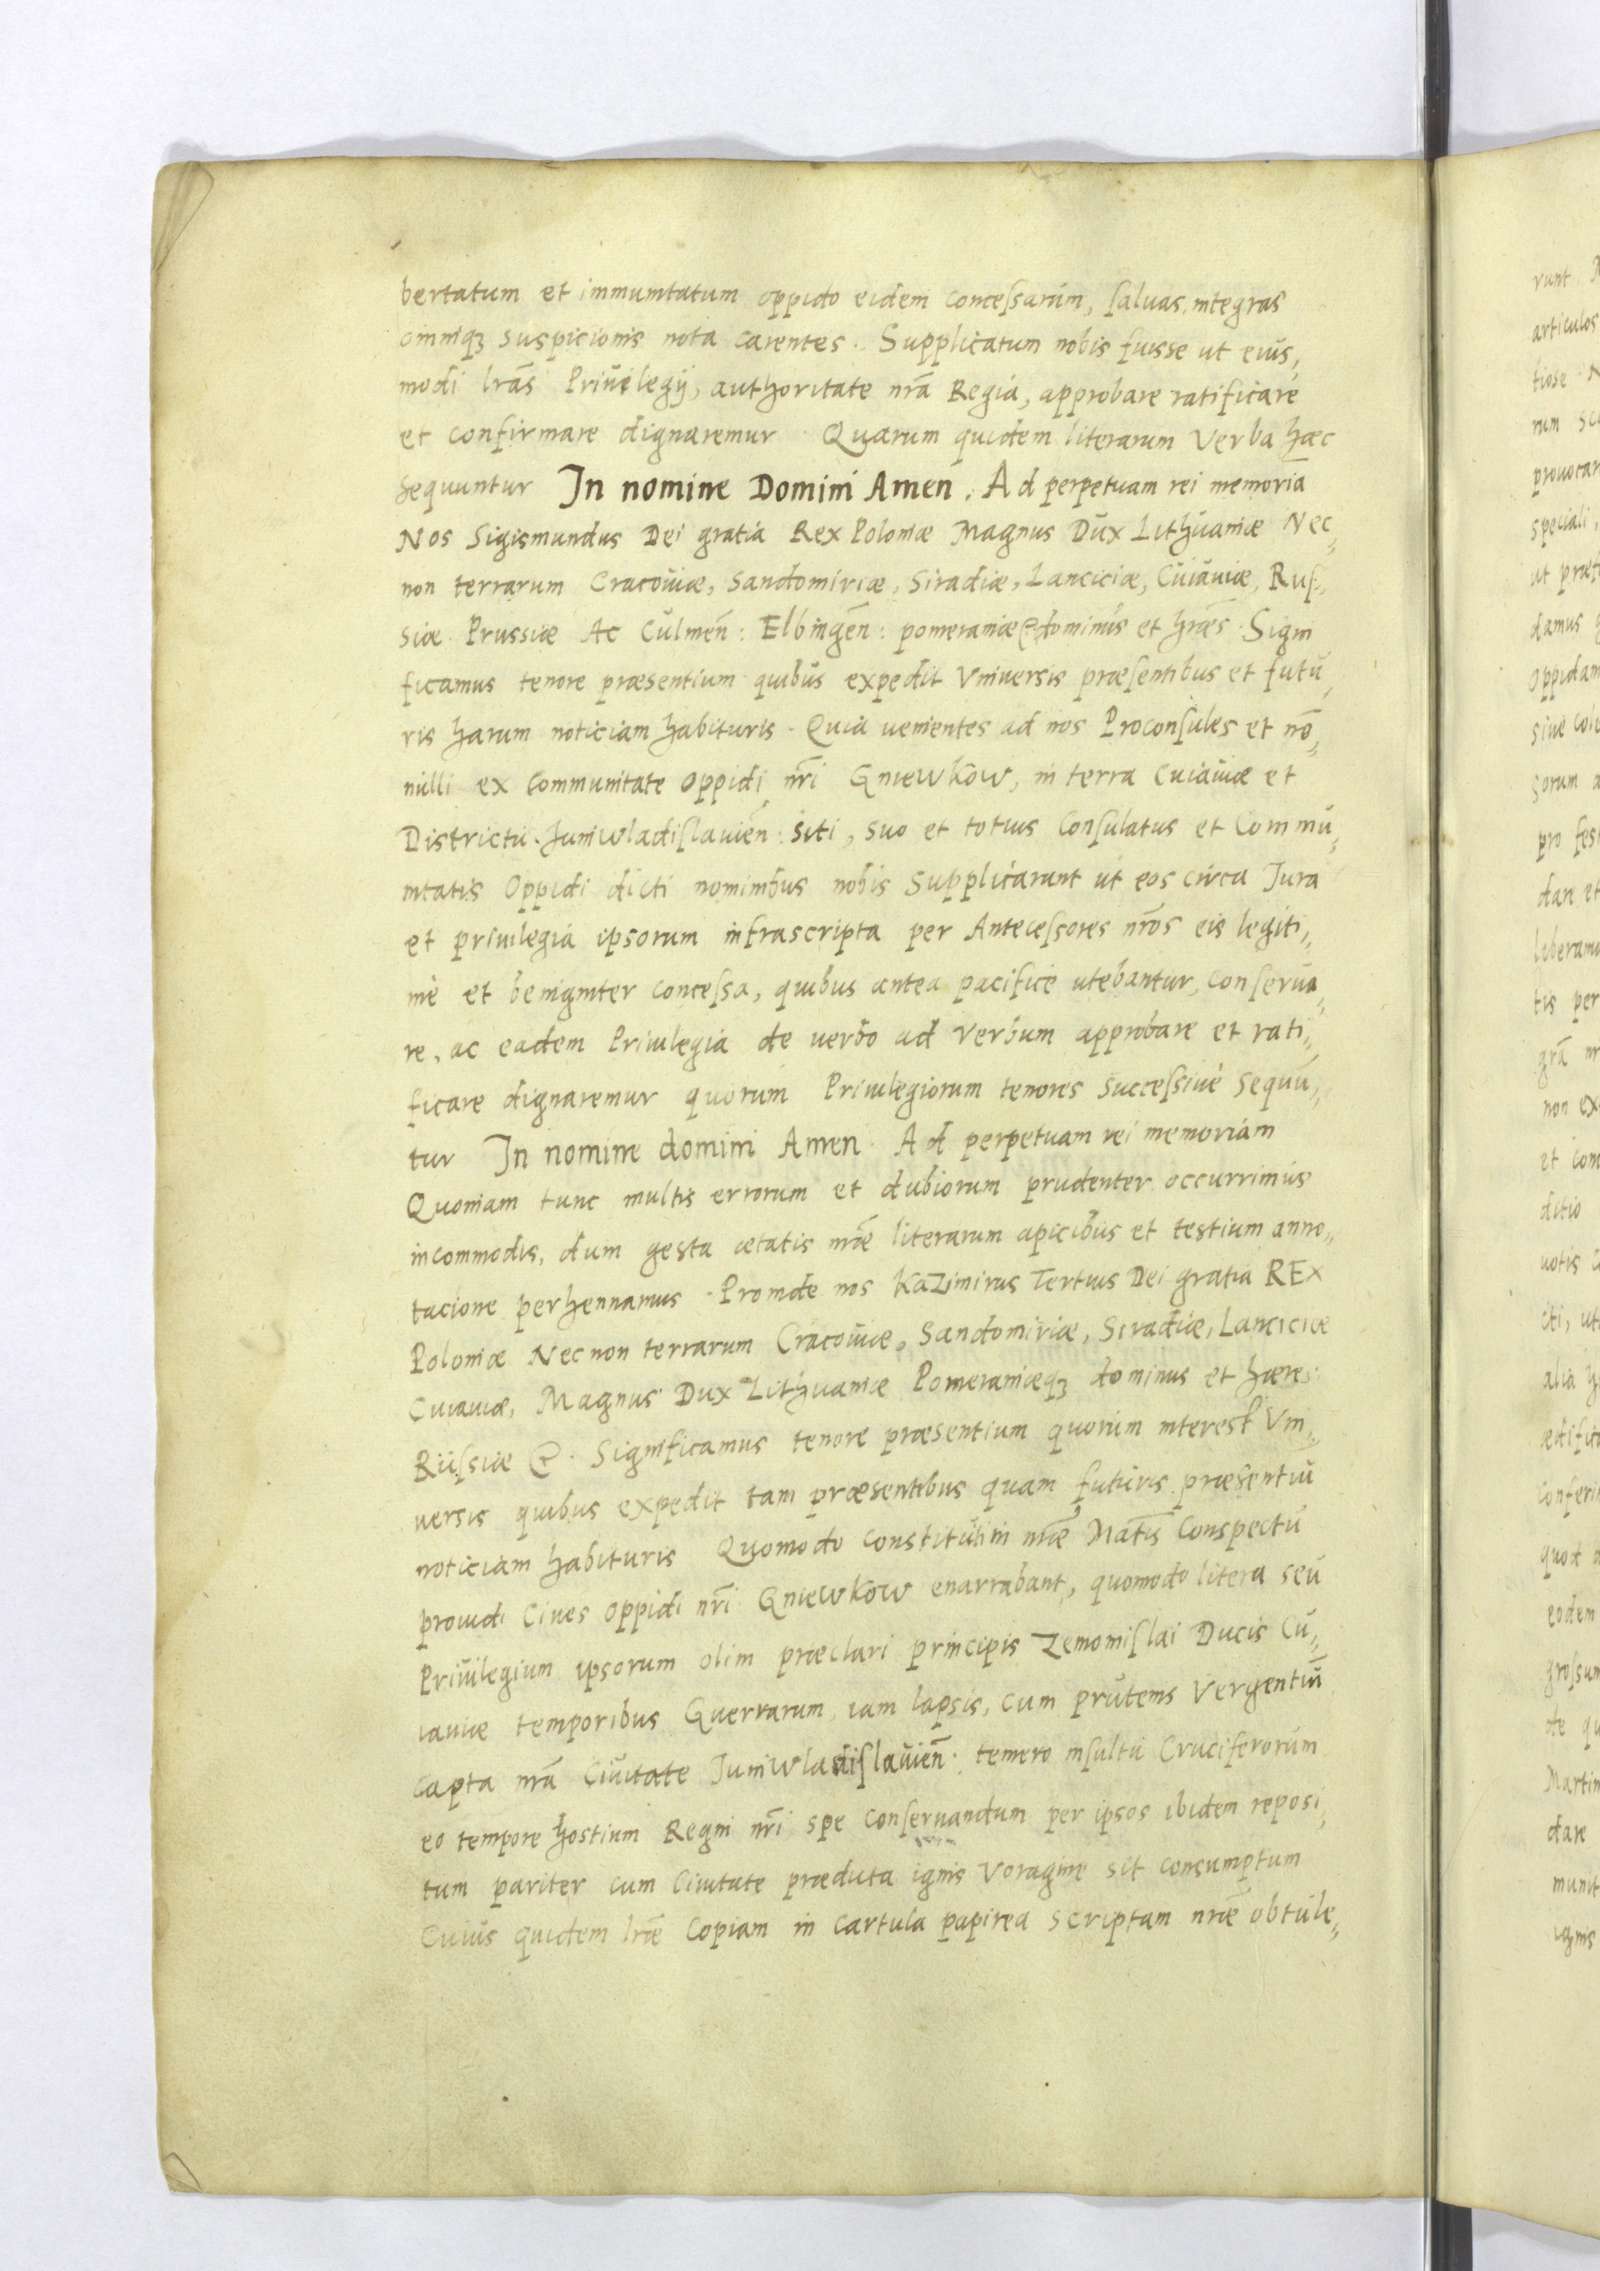 bertatum et immunitatum oppido eidem conceſsarum, ſaluas, integras
omniq₃ suspicionis nota carentes. Supplicatum nobis fuisse ut eius,
modi lrãs Priuilegij, authoritate nrã Regia, approbare ratificare
et confirmare dignaremur Quarum quidem literarum Verba hæc
sequuntur In nomine Domini Amen. Ad perpetuam rei memoriã
Nos Sigismundus Dei gratia Rex Poloniæ Magnus Dux Lithuaniæ Nec,,
non terrarum Cracouiæ, Sandomiriæ, Siradiæ, Lanciciæ, Cuiauiæ, Ruſ,,
siæ Prussiæ Ac Culmeñ: Elbingeñ: pomeraniæq₃ dominus et hræs. Signi
ficamus tenore præsentium quibus expedit Vniuersis præſentibus et futu,,
ris harum noticiam habituris. Quia uenientes ad nos Proconſules et nõ,,
nulli ex communitate oppidi nrĩ Gniewkow, in terra Cuiauiæ et
Districtu Juniwladiſlauieñ: siti, suo et totius Conſulatus et Commu,,
nitatis Oppidi dicti nominibus nobis supplicarunt ut eos circa Jura
et priuilegia ipsorum infrascripta per Anteceſsores nrõs eis legiti,,
mè et benigniter conceſsa, quibus antea pacificè utebantur, conſerua,,
re, ac eadem Priuilegia de uerbo ad Verbum approbare et rati,,
ficare dignaremur quorum Priuilegiorum tenores Succeſsiuè sequũ,,
tur In nomine domini Amen. Ad perpetuam rei memoriam
Quoniam tunc multis errorum et dubiorum prudenter occurrimus
incommodis, dum gesta ætatis nrãe literarum apicibus et testium anno,,
tacione perhennamus. Proinde nos Kazimirus Tertius Dei gratia REx
Poloniæ Nec non terrarum Cracouiæ, Sandomiriæ, Siradiæ, Lanciciæ
Cuiauiæ, Magnus Dux Lithuaniæ Pomeraniæq₃ dominus et hæres:
Ruſsiæ &. Significamus tenore præsentium quorum interest Vni,,
uersis quibus expedit tam præsentibus quam futuris præsentiũ
noticiam habituris Quomodo constituti in nrãe Matĩs Conspectu
prouidi Ciues oppidi nrĩ Gniewkow enarrabant, quomodo litera seu
Priuilegium ipsorum olim præclari principis Zemomiſlai Ducis Cu,,
iauiæ temporibus Guerrarum iam lapsis, cum prutenis Vergentiũ
capta nrã Ciuitate Juniwladiſlauieñ: temero inſultu Cruciferorum
eo tempore hostium Regni nrĩ spe conſeruandum per ipsos ibidem reposi,,
tum pariter cum Ciuitate præduta ignis Voragine sit consumptum
Cuius quidem lrãe Copiam in cartula papirea scriptam nrãe obtule,,